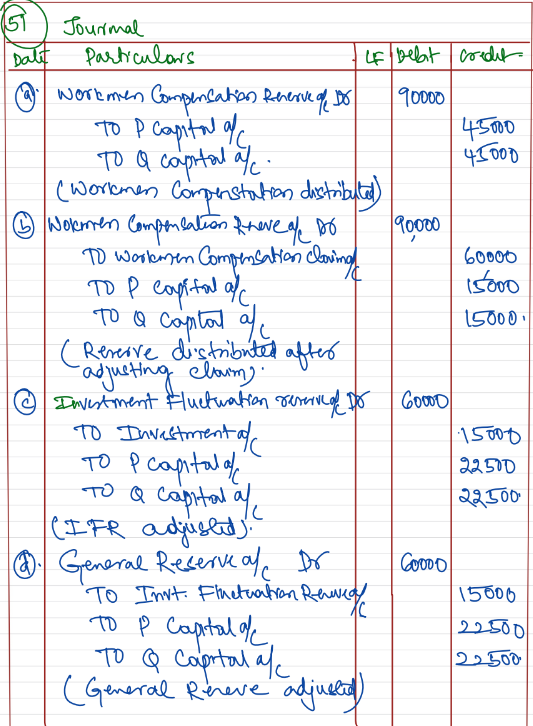 51 Journal
Date Particulars LF Debit Credit
(a). Workmen Compensation Reserve a/c Dr 90000
To P Capital a/c 45000
To Q capital a/c. 45000
(Workmen Compenstation distributed)
(b) Wokmen Compensation Reserve a/c Dr 90,000
To workmen Compensation claim a/c 60000
To P Capital a/c 15000
To Q Capital a/c 15000.
(Reserve distributed after
adjusting claim).
(c) Investment Fluctuation reserve a/c Dr 60000
To Investment a/c 15000
To P Capital a/c 22500
To Q Capital a/c 22,500.
(IFR adjusted).
(d). General Reserve a/c Dr 60000
To Invt. Fluctuation Reserve a/c 15000
To P Capital a/c 22500
To Q Capital a/c 22500.
(General Reserve adjusted)